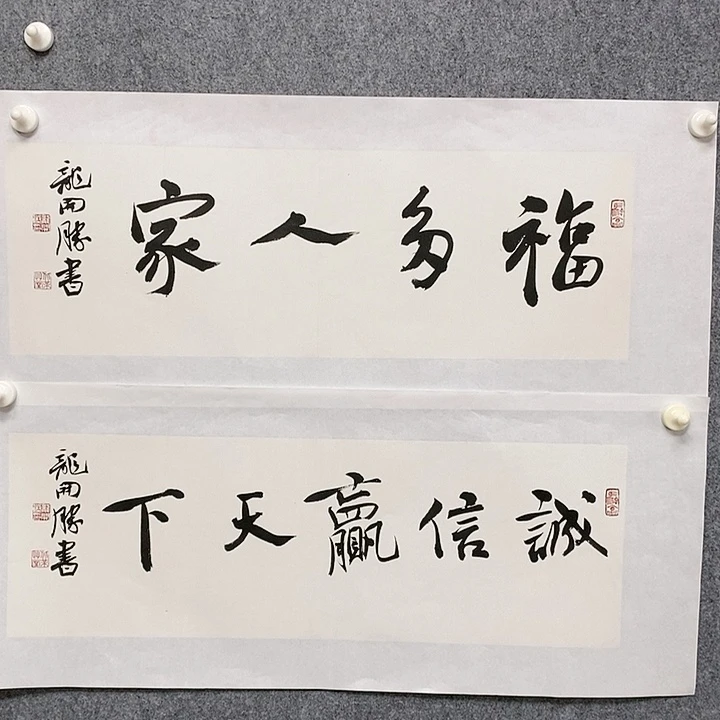 福多人家
龍開勝書
誠信贏天下
龍開勝書